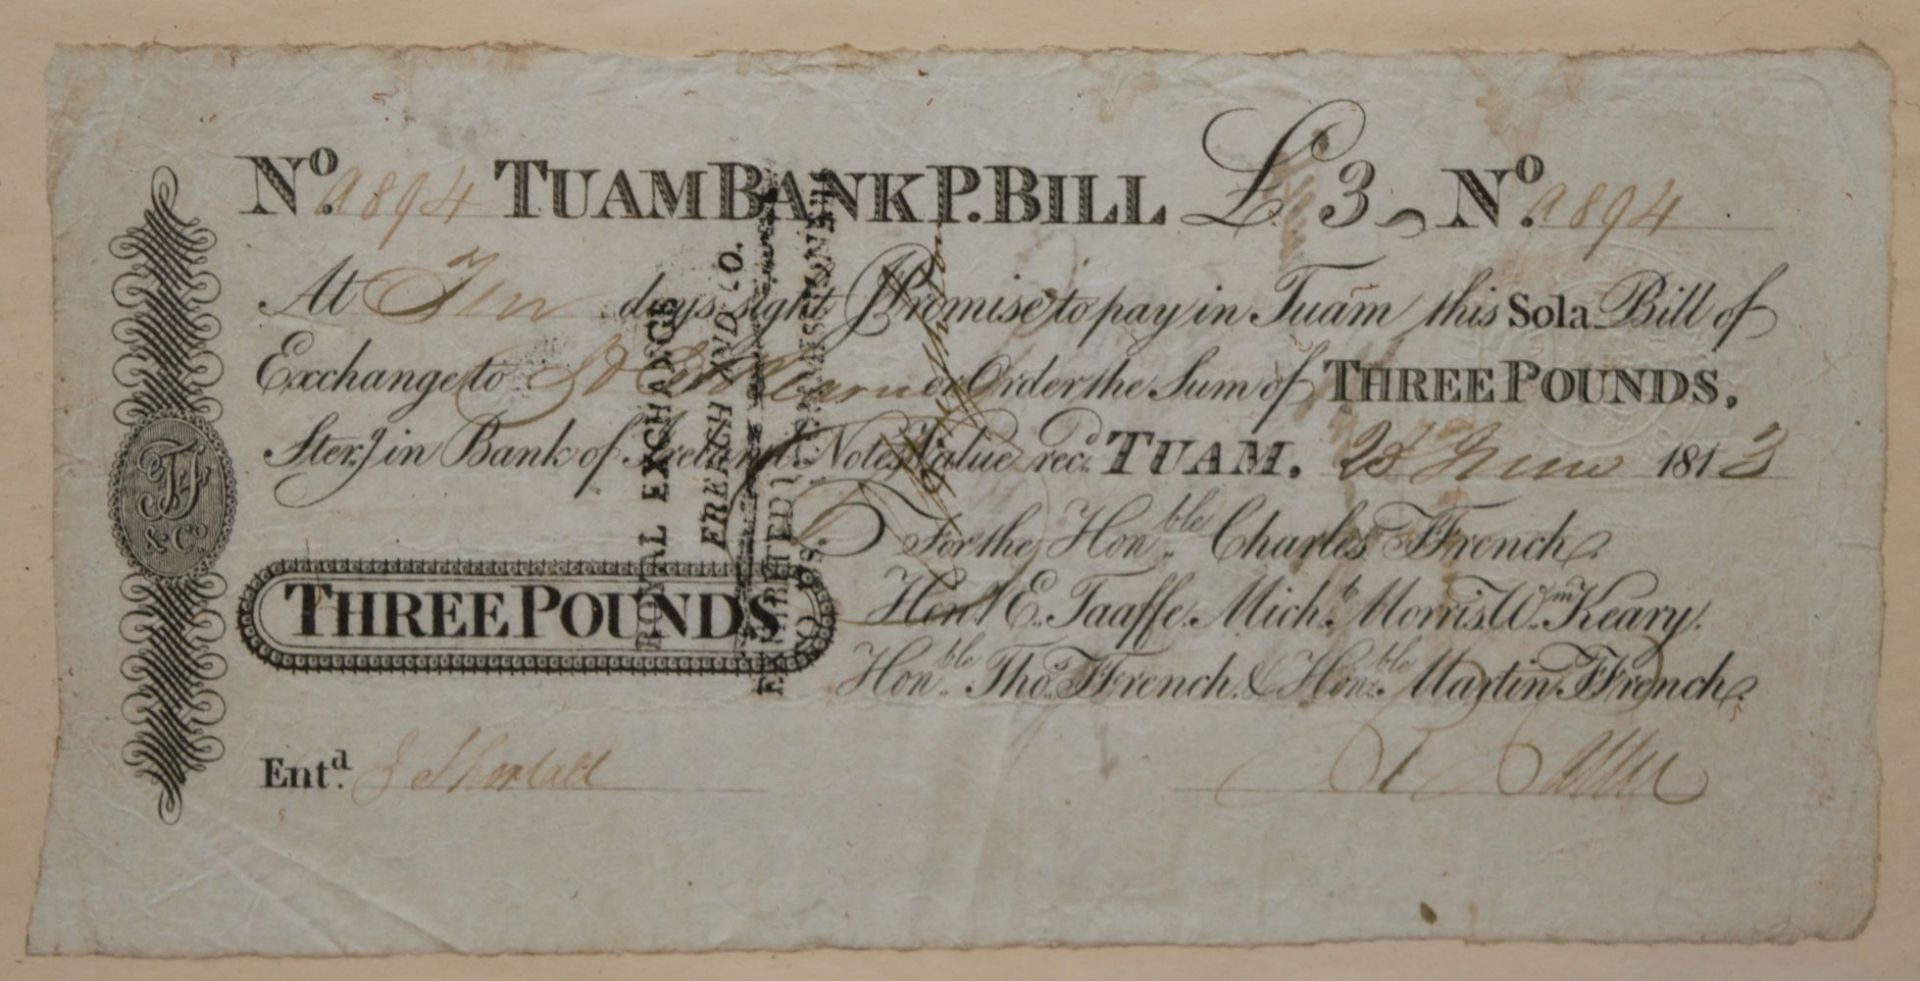 No. A894 TUAM BANK P. BILL £3 No. A894
At Ten days sight I Promise to pay in Tuam this Sola Bill of
Exchange to or Order the Sum of THREE POUNDS,
Ster.g in Bank of Ireland Notes Value rec.d TUAM. 25 June 1813
For the Hon.ble Charles Ffrench.
THREE POUNDS Hen.y E. Taaffe. Mich.l Morris. W.m Keary.
Hon.ble Tho.s Ffrench & Hon.ble Martin Ffrench.
Ent.d J Shortall
FF
& Co
ROYAL EXCHANGE
FFRENCH AND CO.
EXHIBITED COMMISSIONERS